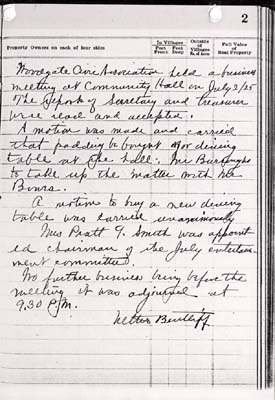 2
Property Owners on each of four sides
In Villages
Feet Front
Feet Deep
Outside of Villages
No. of Acres
Full Value of Real Property
Woodgate Civic Association held a business
meeting at Community Hall on July 2/25
The reports of Secretary and Treasurer
were read and accepted.
A motion was made and carried
that padding be bought for dining
table at the hall. Mr Burroughs
to take up the matter with Mr
Bours.
A motion to buy a new dining
table was carried unanimously
Mrs Pratt G. Smith was appoint
ed chairman of the July entertain
ment committee.
No further business being before the
meeting it was adjourned at
9.30 P.M.
Nettie